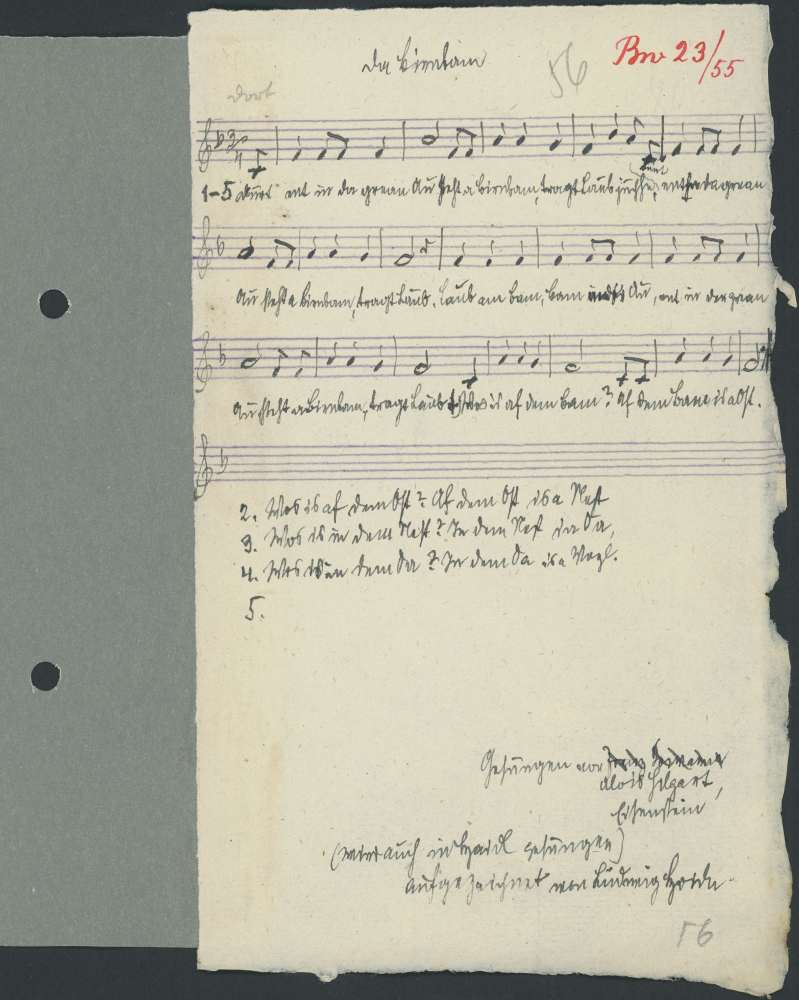 Da Birnbam
56
Bw 23/55
dort
1-5 ent in da grean Au steht a Birnbam, tragt Laub juchhe, ent in da grean
Au steht a Birnbam, tragt Laub. Laub am Bam, Bam in Au, ent in der grean
Au steht a Birnbam, tragt Laub. 1. Wos is af dem Bam? Af dem Bam is a Ost.
2. Wos is af dem Ost? Af dem Ost is a Nest
3. Wos is in dem Nest? In dem Nest is a Oa,
4. Wos is in dem Oa? In dem Oa is a Vogl.
5.
Gesungen von
Alois Hilgart,
Eisenstein
(wird auch in Haidl gesungen)
Aufgezeichnet von Ludwig
56